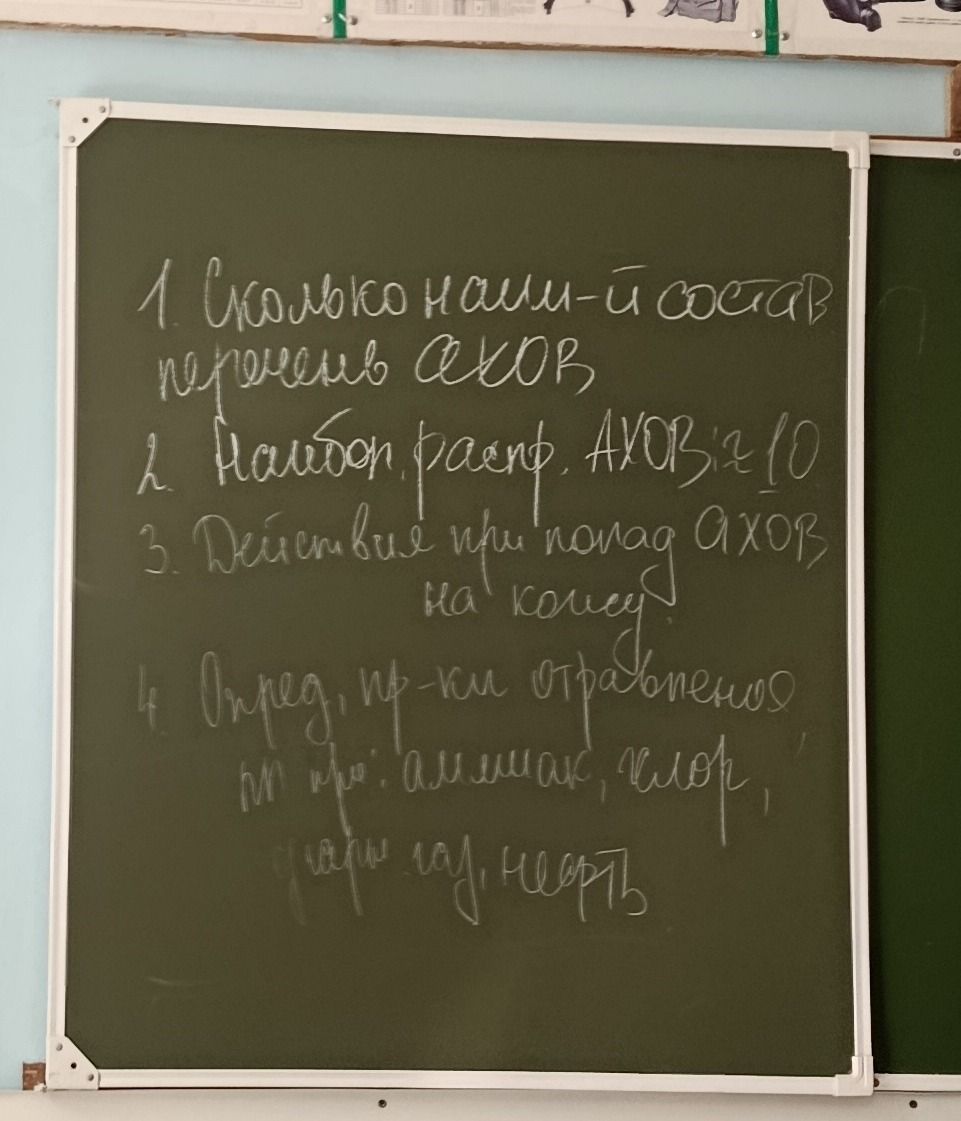 1. Сколько наим-й состав
перечень АХОВ
2. Наибол. распр. АХОВ: ≈ 10
3. Действия при попад АХОВ
на кожу.
4. Опред, пр-ки отравления
при: аммиак, хлор,
угарн газ, нефть